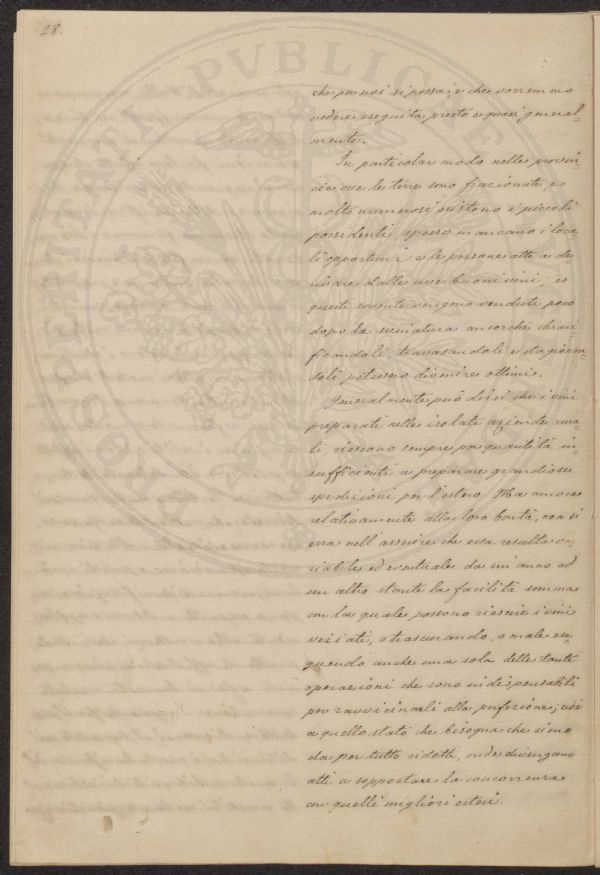 28.
che per noi si possa; e che vorremmo
vedere eseguita presto e quasi general-
mente.
In particolar modo nelle provin-
cie ove le terre sono frazionate, e
molto numerosi esistono i piccoli
possidenti, spesso mancano i loca-
li opportuni e le persone atte a de-
rivare dalle uve buoni vini; e
questi sovente vengono venduti poco
dopo la svinatura ancorchè chiari-
ficandoli, travasandoli e stagionan-
doli potessero divenire ottimi.
Generalmente può dirsi che i vini
preparati nelle isolate aziende rura-
li, riescono sempre per quantità in-
sufficienti a preparare grandiose
spedizioni per l'estero. Ma ancora
relativamente alla loro bontà, non si
erra nell'asserire che essa resulta va-
riabile ed eventuale da un'anno ad
un altro stante la facilità somma
con la quale possono riescire i vini
viziati, o trascurando, o male ese-
guendo anche una sola delle tante
operazioni che sono indispensabili
per ravvicinarli alla perfezione; cioè
a quello stato che bisogna che sieno
da per tutto ridotti, onde divengano
atti a sopportare la concorrenza
con quelli migliori esteri.
PUBLICAE
PROSPERITATI